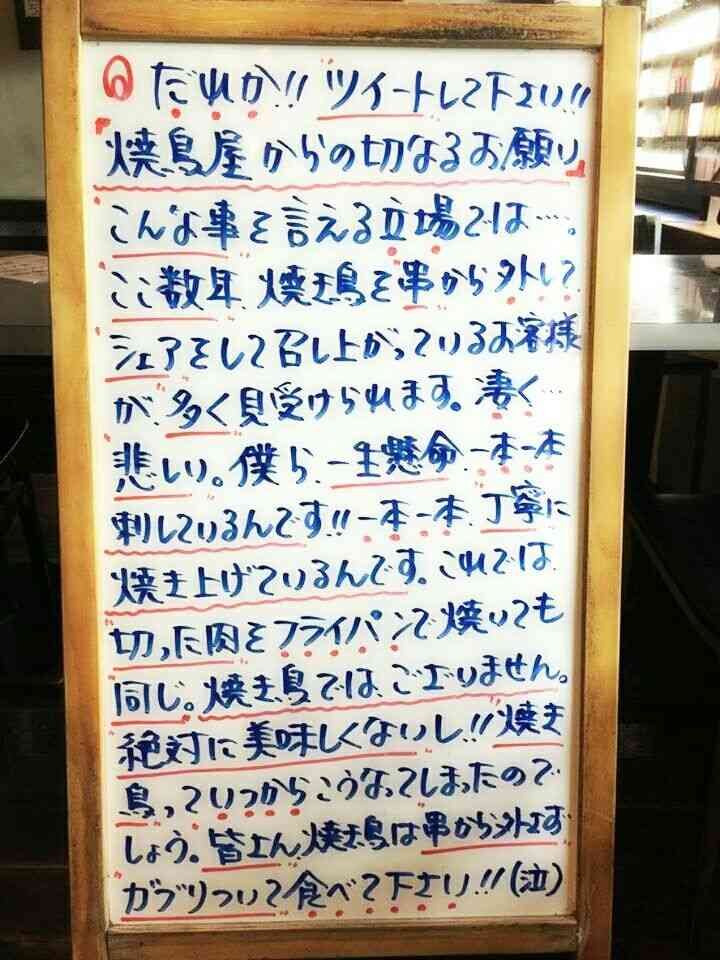 だれか!! ツイートして下さい!!
焼鳥屋からの切なるお願い
こんな事を言える立場では…。
ここ数年、焼き鳥を串から外して
シェアをして召し上がっているお客様
が、多く見受けられます。凄く…
悲しい。僕ら、一生懸命、一本一本
刺しているんです!!一本一本、丁寧に
焼き上げているんです。これでは、
切った肉をフライパンで焼いても
同じ。焼き鳥では、ございません。
絶対に美味しくないし!!焼き
鳥っていつからこうなってしまったので
しょう。皆さん、焼き鳥は串から外さず
ガブリついて食べて下さい!!(泣)